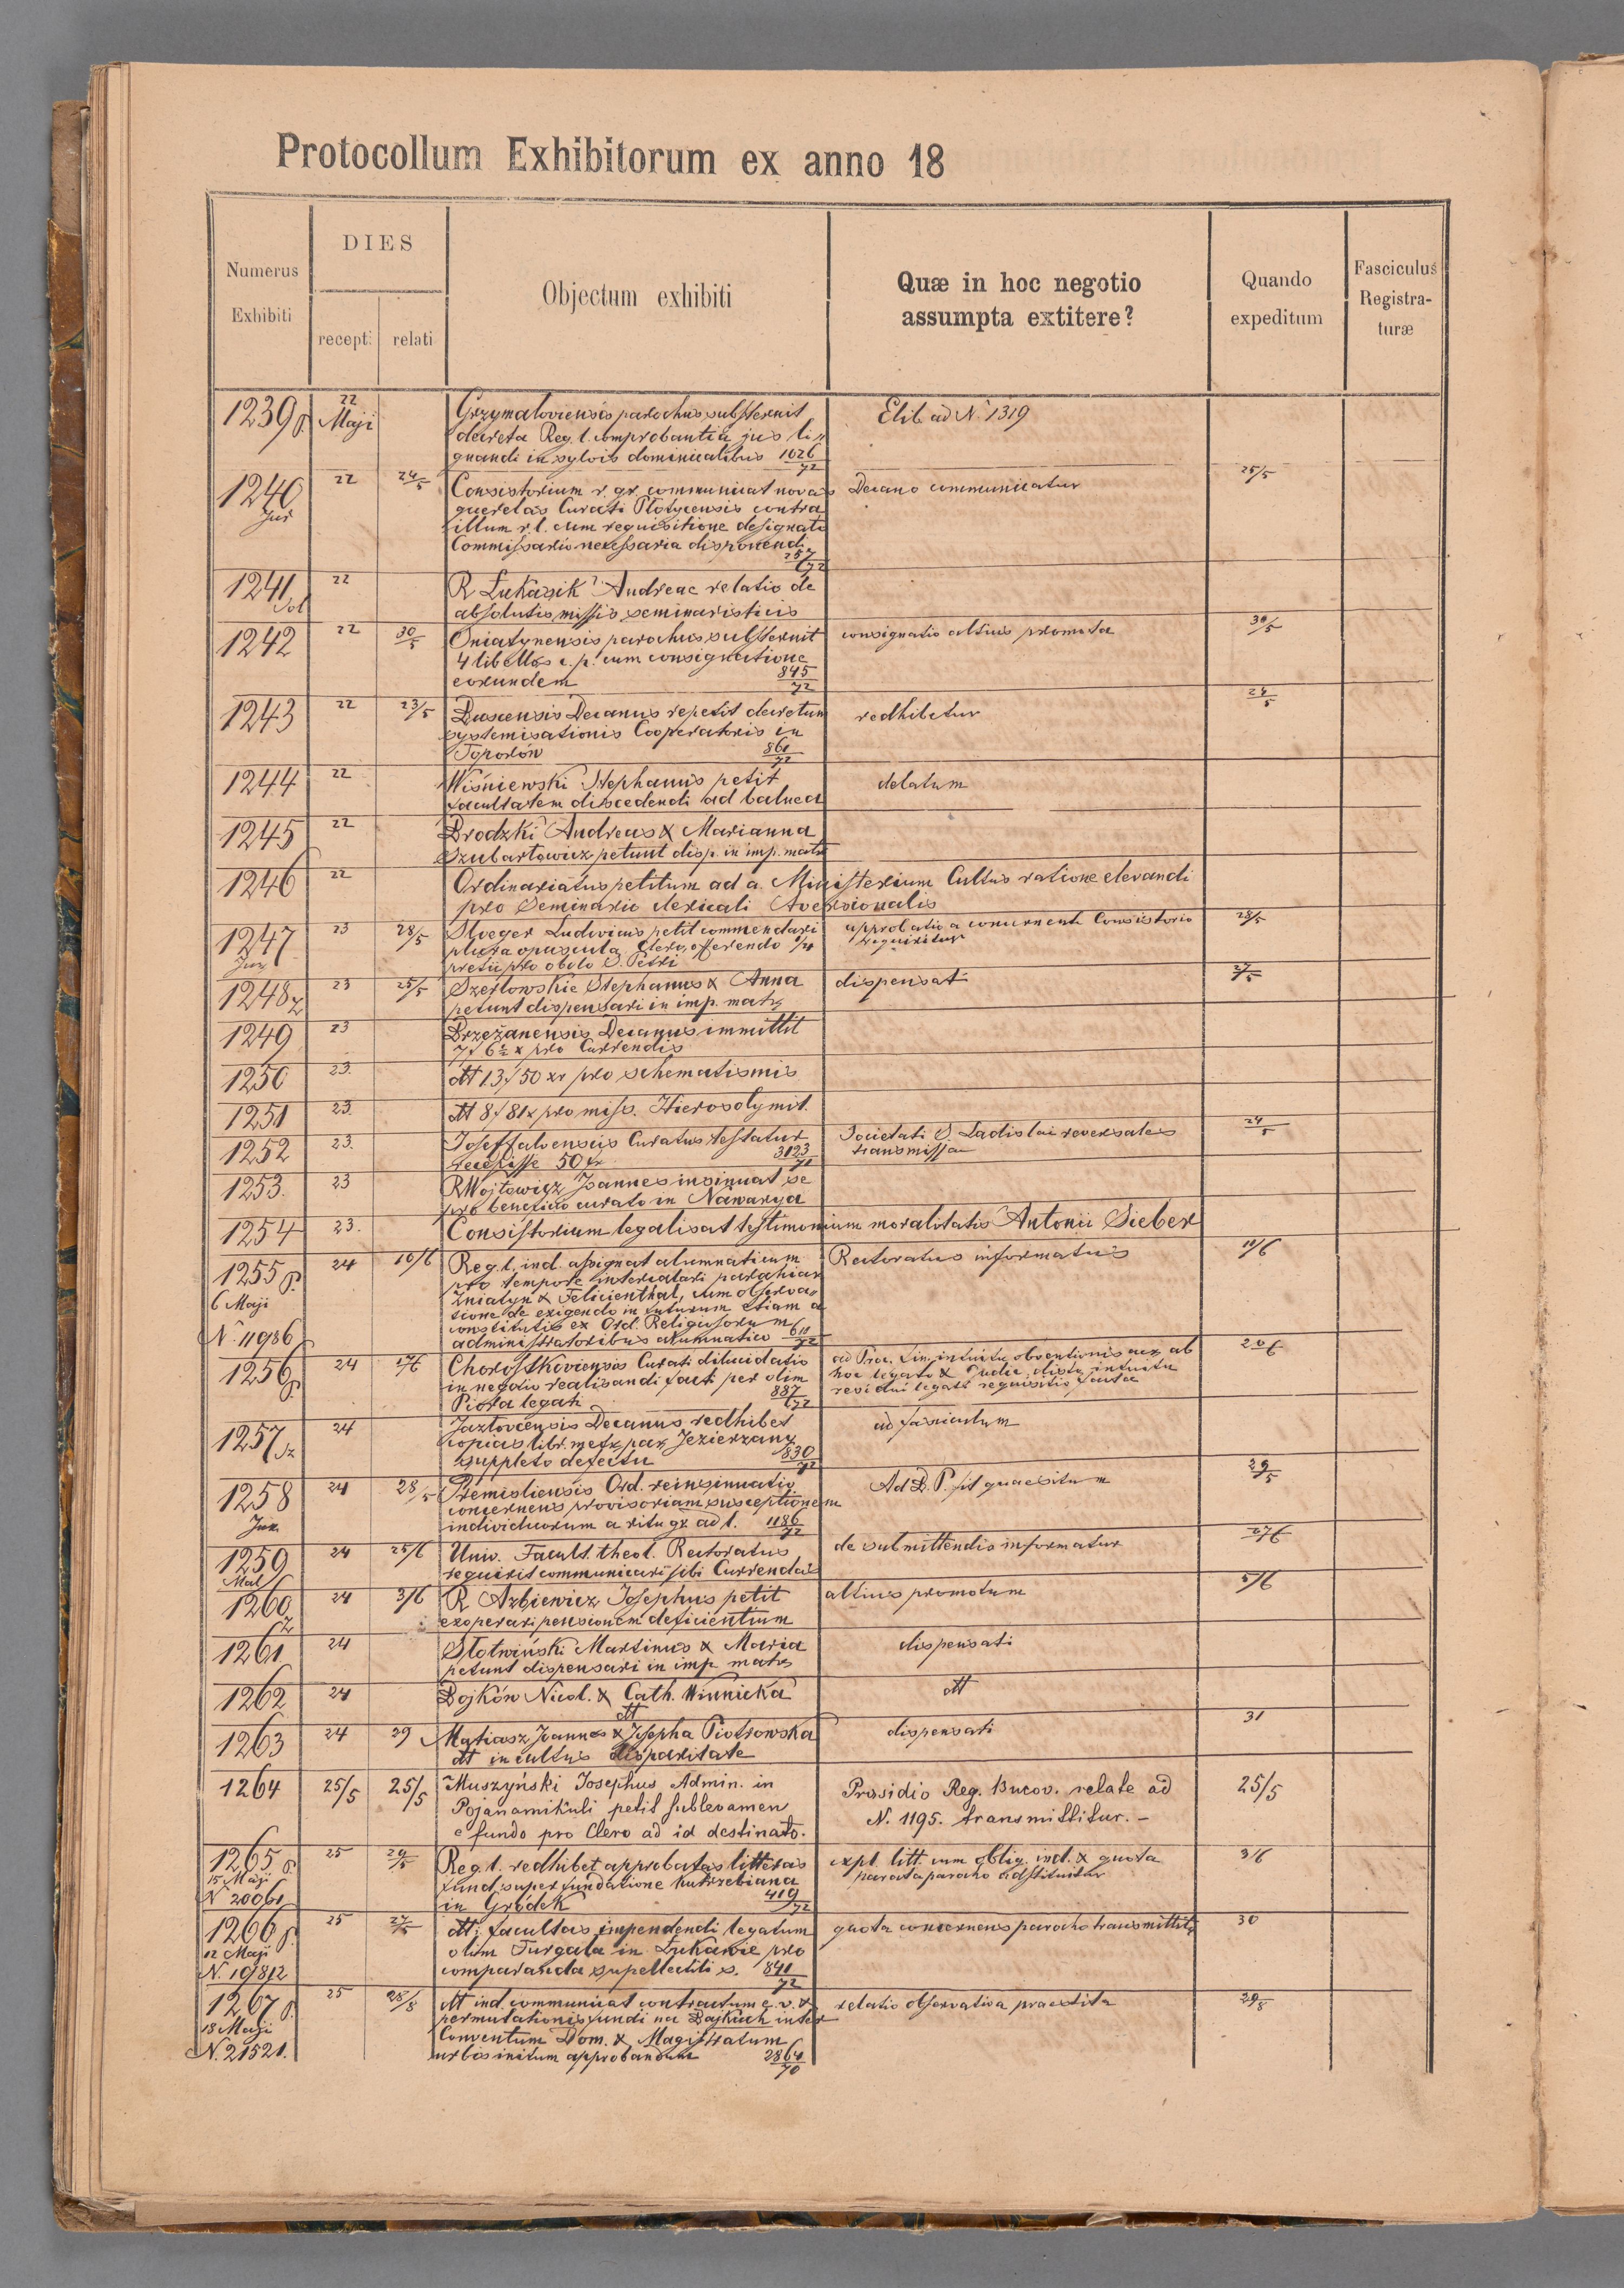 Protocollum Exhibitorum ex anno 18
Numerus Exhibiti
DIES
recept:
relati
Objectum exhibiti
Quæ in hoc negotio assumpta extitere?
Quando expeditum
Fasciculus Registra-turæ
1239 p. 22 Maji Grzymaloviensis parochus substernit Elib. ad N. 1319
decreta Reg. l. comprobantia jus li„
gnandi in sylvis dominicalibus 1026/72
1240 22 24/5 Consistorium r. gr. communicat novas Decano communicatur 25/5
Jur querelas Curati Płotycensis contra
illum r. l. cum requisitione designati
Commissario necessaria disponendi
257/72
1241 22 R Łukasik Andreae relatio de
Sol absolutis missis seminaristicis
1242 22 30/5 Oniatynensis parochus substernit consignatio altius promota 30/5
4 libellos c. p. cum consignatione
eorundem 845/72
1243 22 23/5 Buscensis Decanus repetit decretum redhibetur 24/5
systemisationis Cooperatoris in
Toporów 861/72
1244 22 Wiśniewski Stephanus petit delatum
facultatem discedendi ad balnea
1245 22 Brodzki Andreas & Marianna
Szubartowicz petunt disp. in imp. matr
1246 22 Ordinariatus petitum ad a. Ministerium Cultus ratione elevandi
pro Seminario clericali Aversionalis
1247 23 28/5 Stoeger Ludovicus petit commendari approbatio a concernente Consistorio 28/5
Jur plura opuscula Clero, offerendo requiritur
pretii pro obolo S. Petri
1248 z 23 25/5 Szejlowskie Stephanus & Anna dispensat 27/5
petunt dispensari in imp. matr
1249 23 Brzeżanensis Decanus immittit
7 f 6 1/2 x pro Currendis
1250 23. dtt 13 f 50 xr pro schematismis
1251 23. dtt 8 f 81 x pro miss. Hierosolymit.
1252 23. Joseffalvensis Curatus testatur Societati S. Ladislai reversales 24/5
recepisse 50 fr 3123/71 transmissae
1253. 23 R Wojtowicz Joannes insinuat se
pro beneficio curato in Nawarya
1254 23. Consistorium legalisat testimonium moralitatis Antonii Sieber
1255 p. 24 10/6 Reg. l. ind. assignat alumnaticum Rectoratus informatus 10/6
pro tempore intercalari parochiar
6 Maji Zniatyn & Felicienthal, cum observa„
tione de exigendo in futurum etiam a
N. 11986 constitutis ex Ord. Religiosorum
administratoribus alumnatico 611/72
1256 p 24 17/6 Chorostkoviensis Curati dilucidatio ad Proc. fin. intuitu obventionis aeq. ab 20/6
in negotio realisandi facti per olim hoc legato & Judic. distr. intuitu
Piota legati 887/72 residui legati requisitio facta
1257 Jz 24 Jazłovcensis Decanus redhibet ad fasciculum
copias libr. metr. par. Jezierzany
suppleto defectu 830/72
1258 24 28/5 Premisliensis Ord. reinsinuatio Ad D. P. fit quaesitum 29/5
Jur. concernens provisoriam susceptionem
individuorum a ritu gr. ad l. 1186/72
1259 24 25/6 Univ. Facult. theol. Rectoratus de submittendis informatur 27/6
Mal requirit communicari sibi Currendas
1260 z 24 3/6 R Arbiewicz Josephus petit altius promotum 5/6
exoperari pensionem deficientium
1261 24 Słotwiński Martinus & Maria dispensati
petunt dispensari in imp. matr
1262 24 Bojków Nicol. & Cath. Winnicka dtt
dtt
1263 24 29 Matiasz Joannes & Josepha Piotrowska dispensati 31
dtt in cultus disparitate
1264 25/5 25/5 Muszyński Josephus Admin. in Prasidio Reg. Bucov. relate ad 25/5
Pojanamikuli petit sublevamen N. 1195. transmittitur. –
e fundo pro Clero ad id destinato.
1265 p 25 29/5 Reg. l. redhibet approbatas litteras expl. litt. cum oblig. ind. & quota 3/6
15 Maji fund. super fundatione Kutrzebiana parata paracho adstituitur
N 20061 in Gródek 419/72
1266 p. 25 27/5 dtt: facultas impendendi legatum quota concernens paracho transmittitr 30
12 Maji olim Furgala in Łukawie pro
N. 19812 comparanda supellectili s. 841/72
1267 p. 25 28/8 dtt ind. communicat contractum e. v. & relatio observativa praestita 29/8
18 Maji permutationis fundi na Bajkach inter
Conventum Dom. & Magistratum
N. 21521. urbis initum approbandum 2864/70